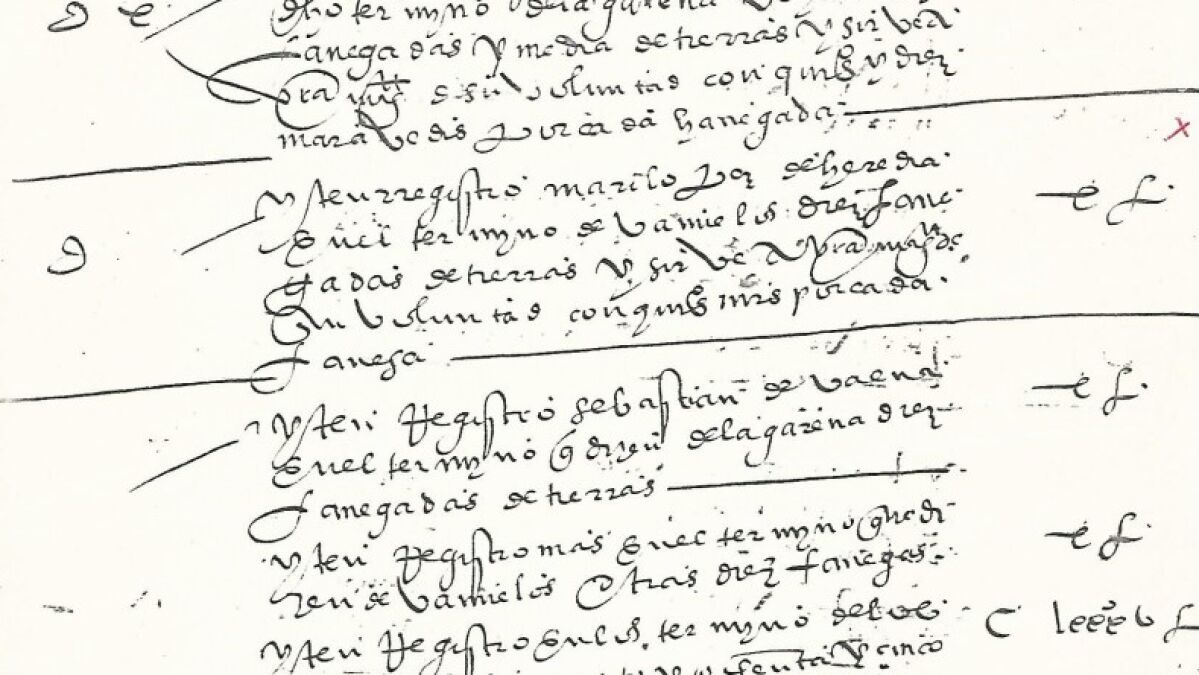 dho termyno dela garena
fanegadas y media de tierras y sirvela
pra myº de su voluntad con quinºs y diez
maravedis por cada hanegada
yten rregistro marcelo perz de heredia
en el termyno de vamielos diez fane
gadas de tierras y sirve a pra mya de
su voluntad con quinºs mrs por cada
fanega
yten Registro sebastian de vaena
en el termyno q dizen dela garena diez
fanegadas de tierras
yten Registro mas en el termyno que di
zen de vamielos otras diez fanegas
yten Registro en el termyno del
y cinco